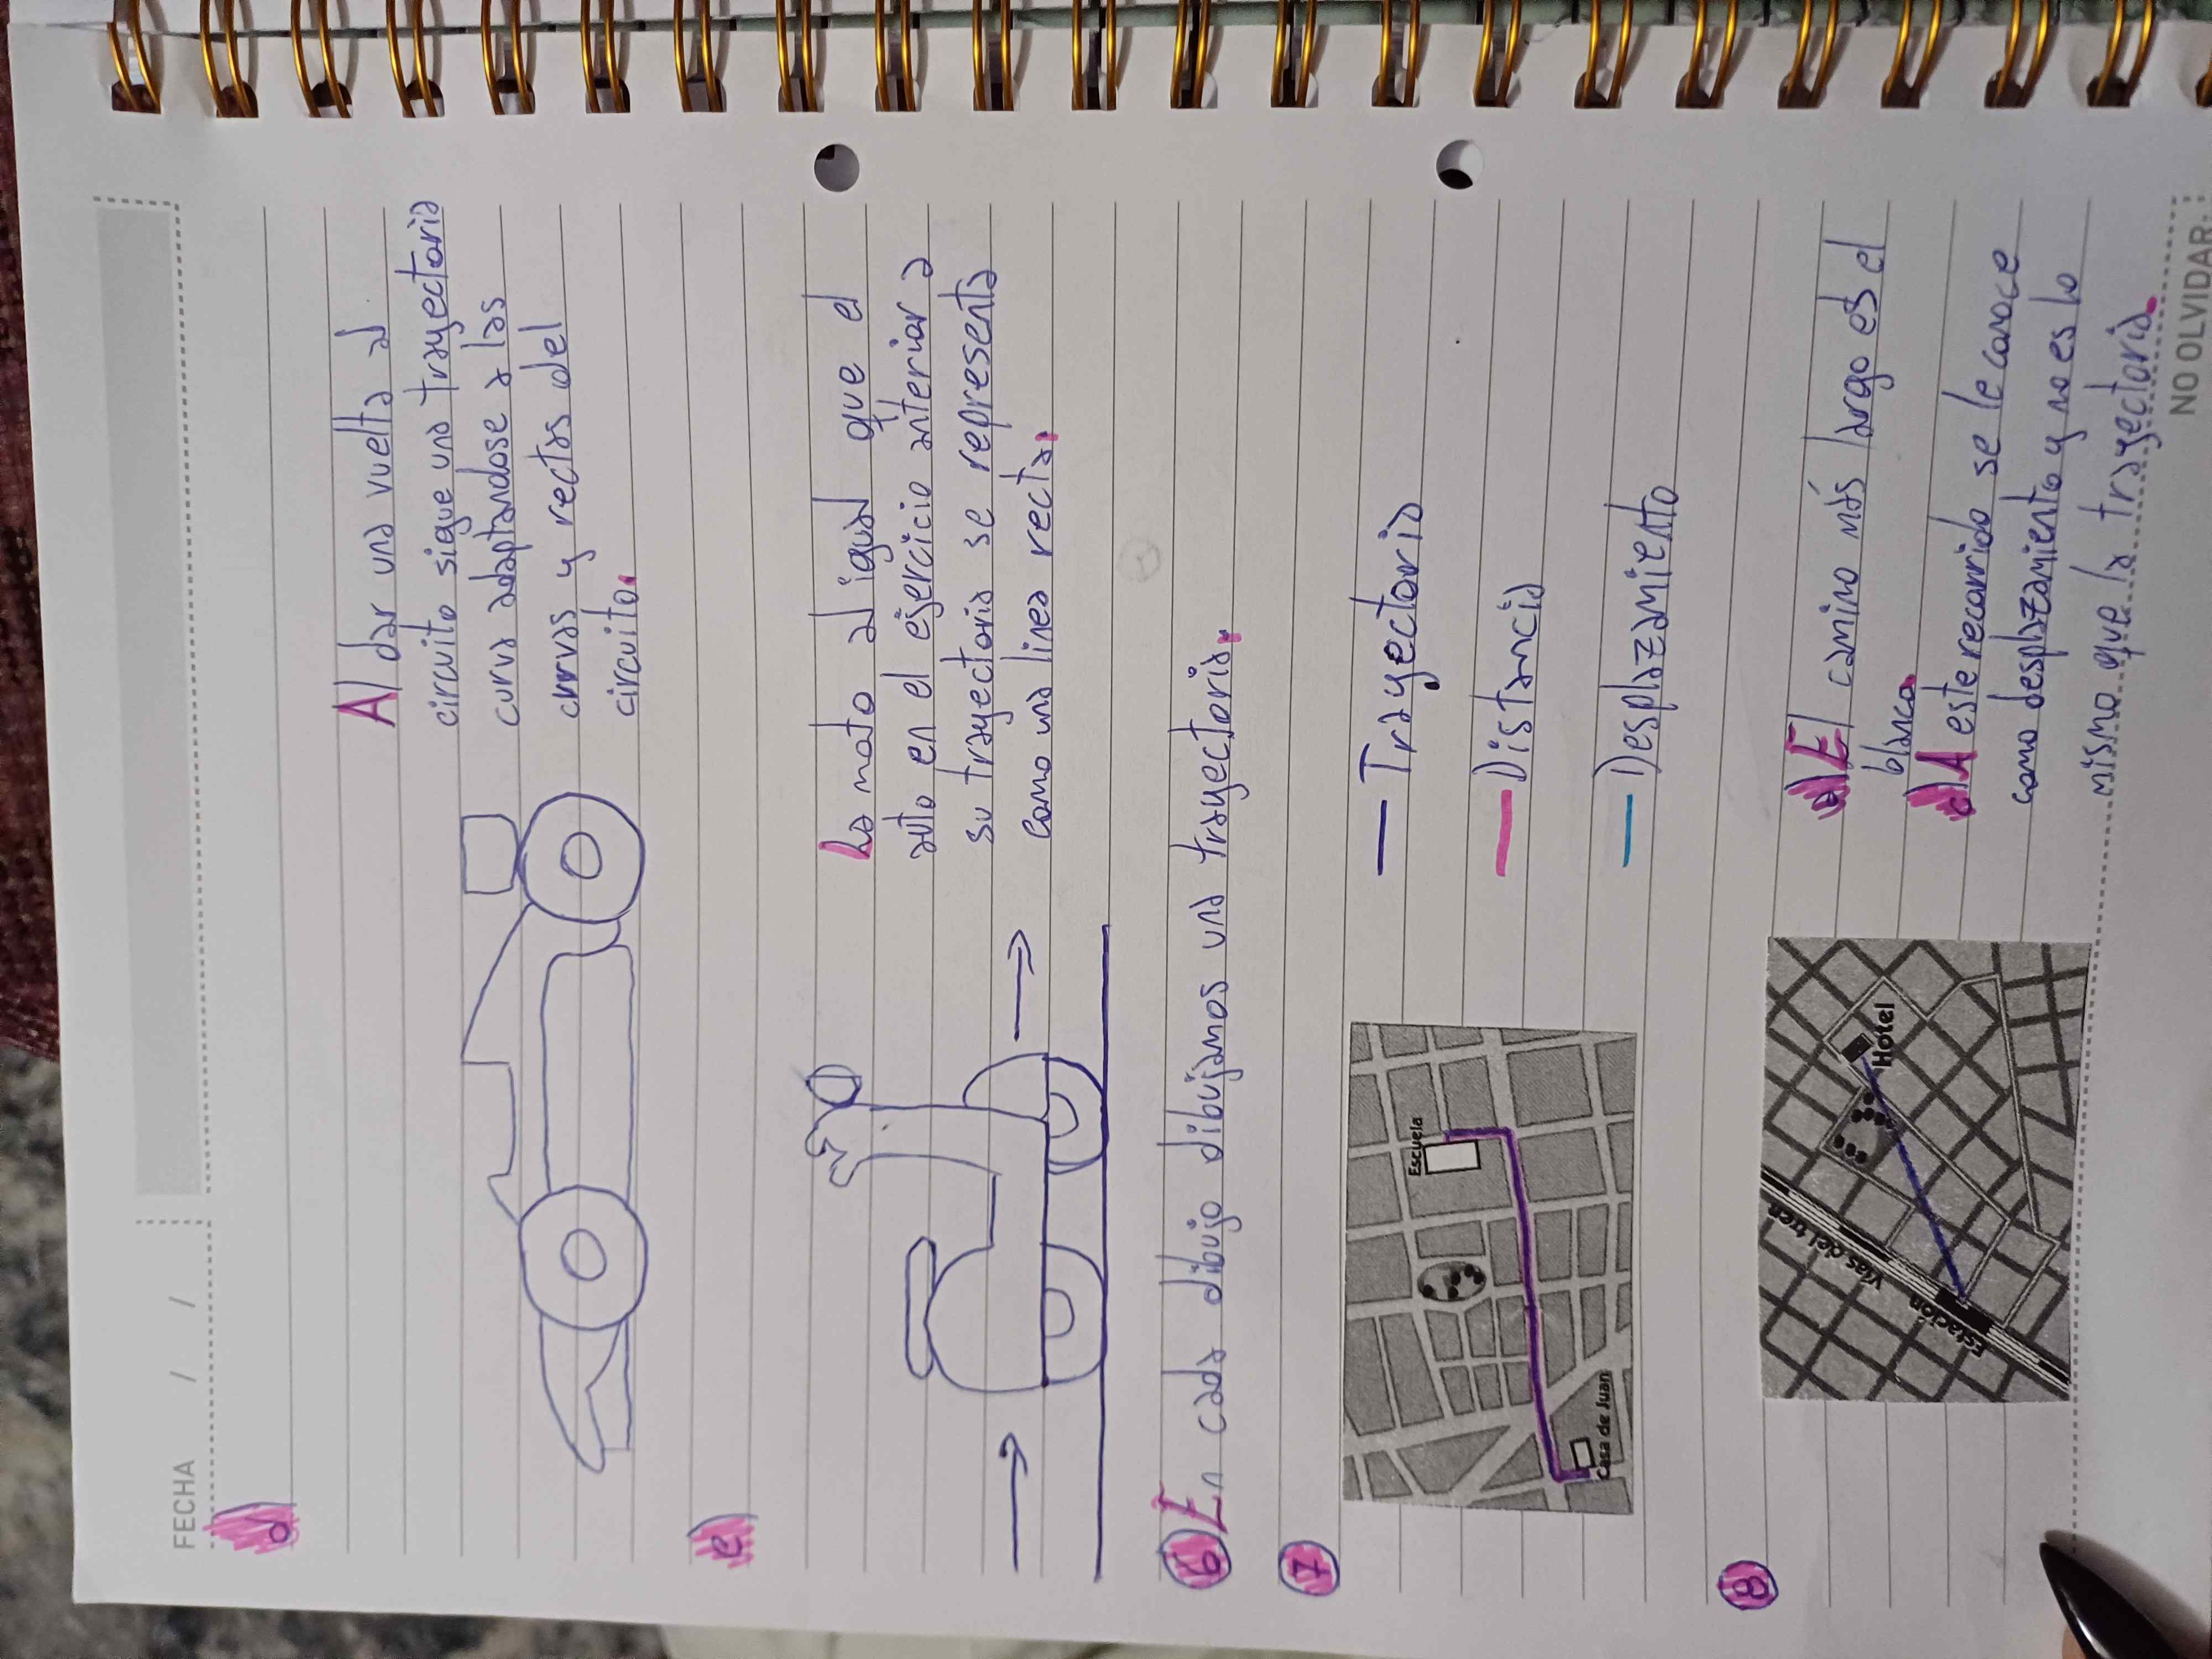 FECHA / / /
d)
Al dar una vuelta al
circuito sigue una trayectoria
curva adaptandose a las
curvas y rectas del
circuito.
e)
La moto al igual que el
auto en el ejercicio anterior a
su trayectoria se representa
como una linea recta.
6) En cada dibujo dibujamos una trayectoria.
7)
Escuela
Casa de Juan
— Trayectoria
— Distancia
— Desplazamiento
8)
Vías del tren
Estación
Hotel
a) El camino más largo es el
blanco.
c) A este recorrido se le conoce
como desplazamiento y no es lo
mismo que la trayectoria.
NO OLVIDAR: